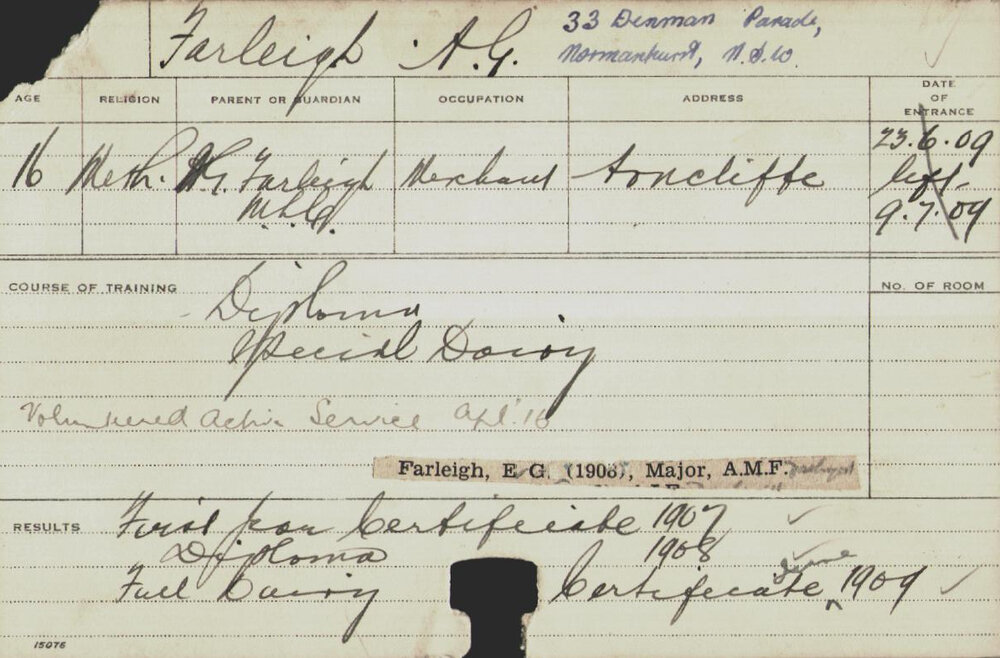 Farleigh A.G.
33 Denman Parade,
Normanhurst, N.S.W.
AGE RELIGION PARENT OR GUARDIAN OCCUPATION ADDRESS DATE OF ENTRANCE
16 Meth. Farleigh Merchant Arncliffe 23.6.09
M.L.C. left
9.7.09
COURSE OF TRAINING
No. OF ROOM
Diploma
Special Dairy
Volunteered Active Service Apl. 16
Farleigh, E G. (1908), Major, A.M.F.
RESULTS
First year Certificate 1907
Diploma 1908
Full Dairy Certificate June 1909
15076